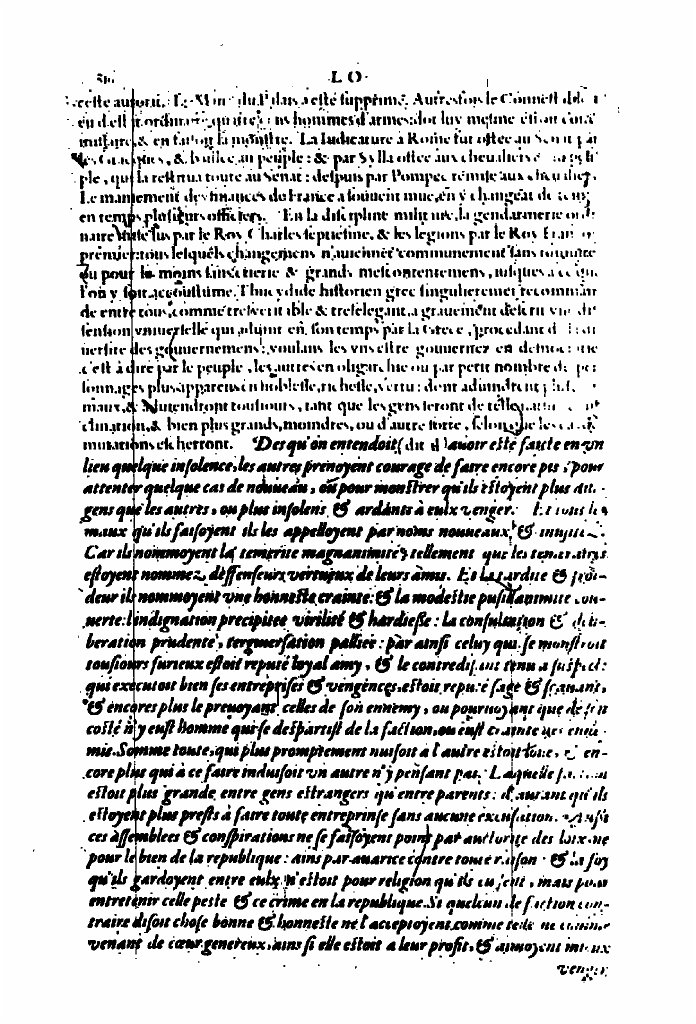 LO
ceste Le supprimé. Autresfois le
en hommes d'armes: dot luy mesme
& en faisoit la monstre. La Iudicature à Rome fut ostee au
& baillee au peuple: & par Sylla ostee aux cheualiers
ple, qui la restitua toute au Senat: despuis par Pompee
Le maniement des finances de France a souuent mué, en y changeãt de
en temps plusieurs officiers. En la discipline militaire, la gendarmerie
sus par le Roy Charles septiesme, & les legions par le Roy
premier: tous lesquels changemens n'auiennẽt communement sans
ou pour le moins sans & grands mescontentemens, iusques à ce
l'on y soit accoustumé. Thucydide historien grec singulieremẽt
de entre tous, comme & tres elegant, a grauemẽt
sension vniuerselle qui en son temps par la Grece, procedant
uersite des gouuernemens: voulans les vns estre gouuernez en
c'est à dire par le peuple, les autres en oligarchie ou par petit nombre de
sonnages plus apparens en noblesse, richesse, vertu: dont
maux, & tousiours, tant que les gens seront de
clination, & bien plus grands, moindres, ou d'autre sorte, selon que
mutations escherront. Des qu'on entendoit (dit il) auoir esté faicte en vn
lieu quelque insolence, les autres prenoyent courage de faire encore pis, pour
attenter quelque cas de nouueau, ou pour monstrer qu'ils estoyent plus
gens que les autres, ou plus insolens & ardãts à eulx venger. Et tous
maux qu'ils faisoyent ils les appelloyent par noms nouueaux, &
Car ils nommoyent la temerité magnanimité, tellement que les
estoyent nommez deffenseurs vertueux de leurs amis. Et la tardité &
deur ils nommoyent vne honneste crainte: & la modestie pusillanimité
uerte: l'indignation precipitee virilité & hardiesse: la consultation &
beration prudente, terguersation palliee: par ainsi celuy qui se monstroit
tousiours furieux estoit reputé loyal amy, & le contredisant tenu
qui executoit bien ses entreprises & vengẽces, estoit reputé sage &
& encores plus le preuoyant celles de son ennemy, ou pouruoyant que de son
costé n'y eust homme qui se despartist de la faction, ou eust crainte
mie. Somme toute, qui plus promptement nuisoit à l'autre estoit loué, & en-
core plus qui à ce faire induisoit vn autre n'y pensant pas. Laquelle
estoit plus grande entre gens estrangers qu'entre parents: d'autant qu'ils
estoyent plus prests à faire toute entreprinse sans aucune excusation.
ces assemblees & conspirations ne se faisoyent point par auctorité des loix ne
pour le bien de la republique: ains par auarice contre toute raison. & la foy
qu'ils gardoyent entre eulx n'estoit pour religion qu'ils mais pour
entretenir celle peste & ce crime en la republique. Si quelcun de faction con-
traire disoit chose bonne & honneste ne l'acceptoyent, comme
venant de cœur genereux, ains si elle estoit à leur profit, & aimoyent
venger